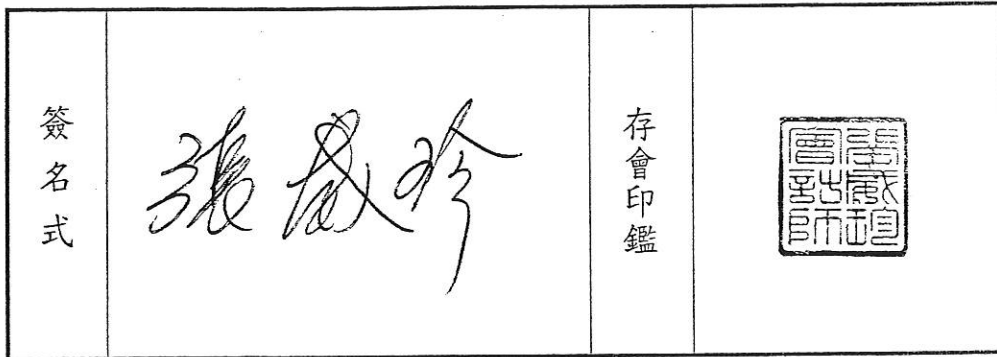 簽名式
張威珍
存會印鑑
張威珍
會計師